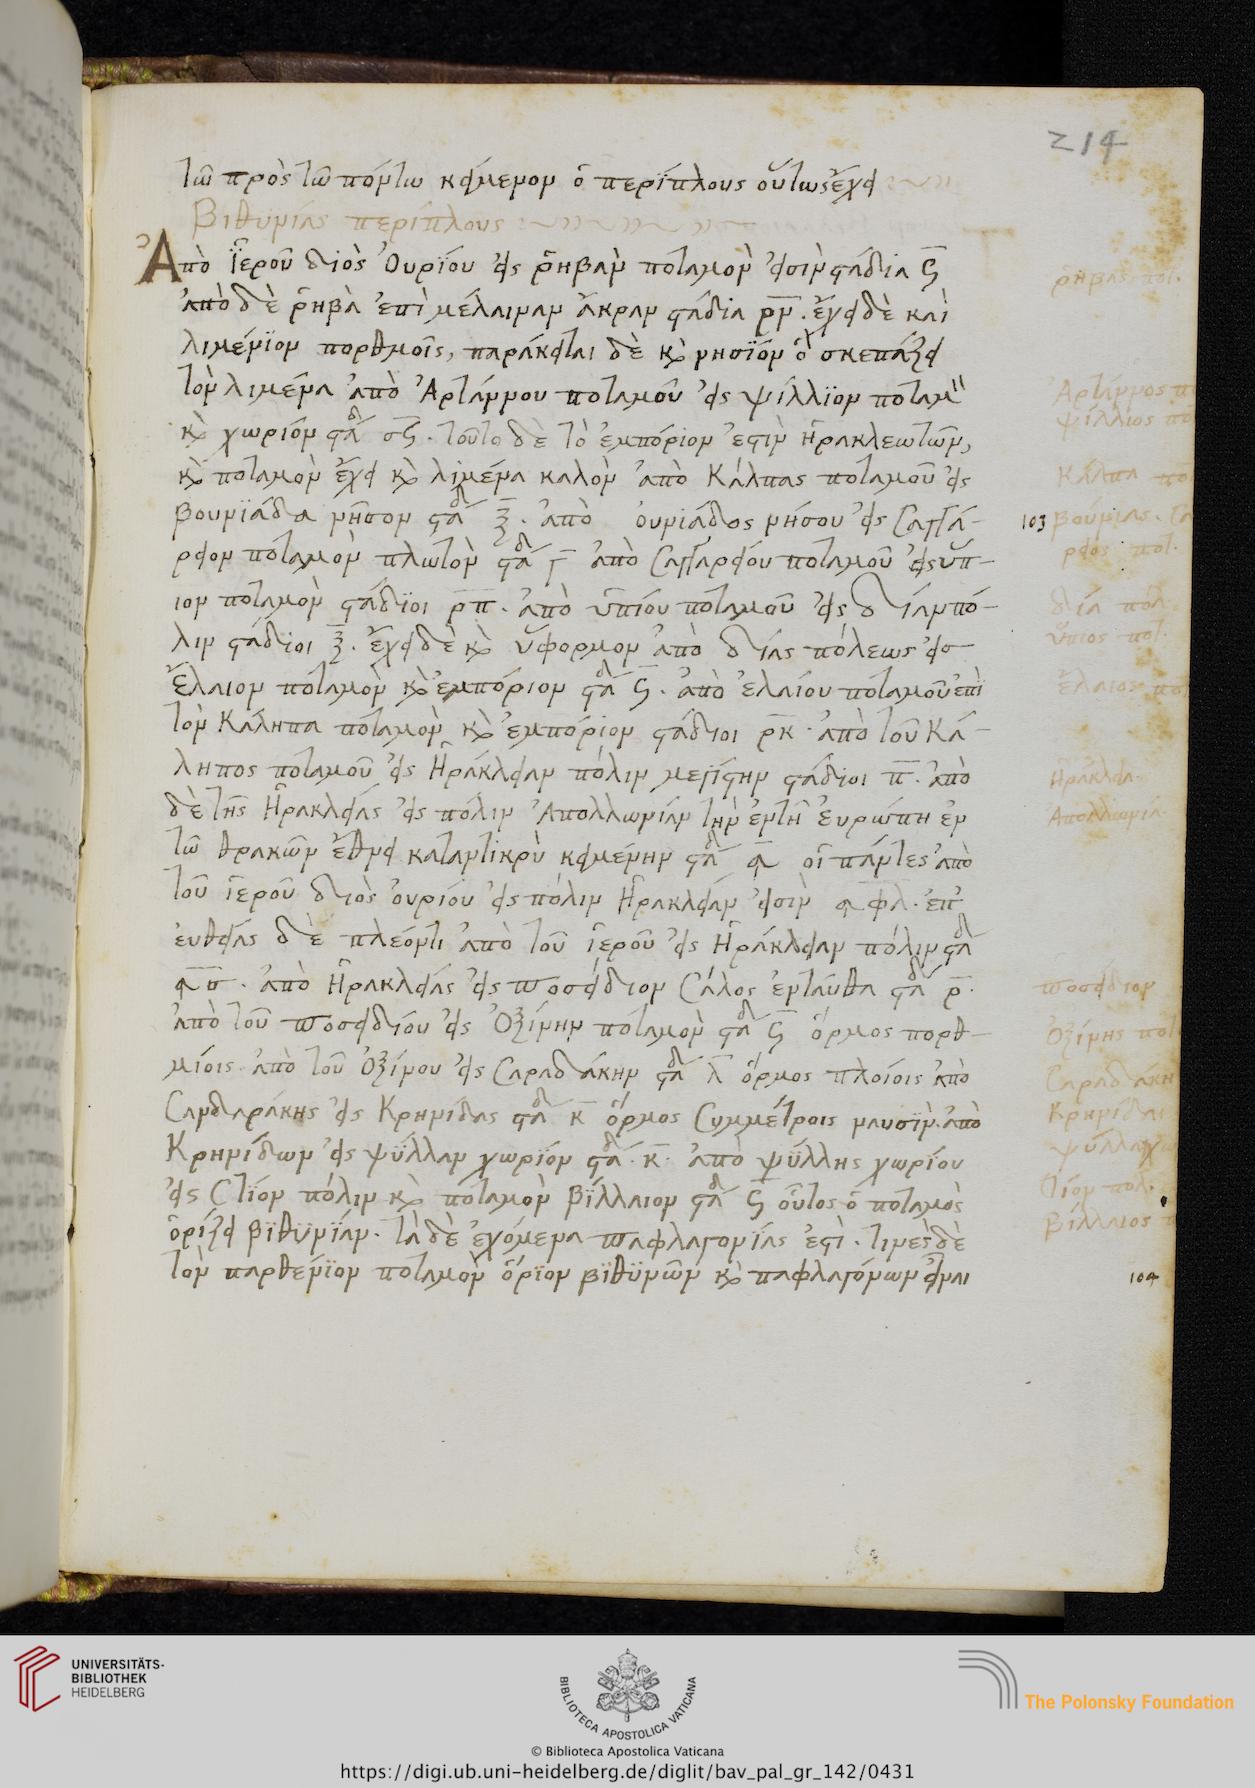 214
τῶ πρὸς τῶ πόντω κείμενον ὁ περίπλους οὕτως ἔχει
Βιθυνίας περίπλους
Ἀπὸ ἱεροῦ διὸς Ὀυρίου εἰς ῥήβαν ποταμὸν εἰσὶν στάδια ϛ
ἀπὸ δὲ ῥήβα ἐπὶ μέλαιναν ἄκραν στάδια ρν. ἔχει δὲ καὶ
λιμένιον πορθμοῖς, παράκειται δὲ κὶ νησίον ὃ σκεπάζει
τὸν λιμένα ἀπὸ Ἀρτάννου ποταμοῦ εἰς ψίλλιον ποταμὸν
κὶ χωρίον στάδ σζ. τοῦτο δὲ τὸ ἐμπόριον ἐστὶν ἡρακλεωτῶν,
κὶ ποταμὸν ἔχει κὶ λιμένα καλὸν ἀπὸ Κάλπας ποταμοῦ εἰς
βουνιάδα νῆσον στάδ ξ. ἀπὸ ὀυνιάδος νήσου εἰς Σαγγά-
103
ρειον ποταμὸν πλωτὸν στάδ γ ἀπὸ Σαγγαρείου ποταμοῦ εἰς ὕπ-
ιον ποταμὸν στάδιοι ρπ. ἀπὸ ὑπίου ποταμοῦ εἰς δίανπό-
λιν στάδιοι ξ. ἔχει δὲ κὶ ὕφορμον ἀπὸ δίας πόλεως εἰσ
ἔλαιον ποταμὸν κὶ ἐμπόριον στάδ ϛ. ἀπὸ ἐλαίου ποταμοῦ ἐπὶ
τὸν Κάληπα ποταμὸν κὶ ἐμπόριον στάδιοι ρκ. ἀπὸ τοῦ Κά-
ληπος ποταμοῦ εἰς Ἡράκλειαν πόλιν μεγίστην στάδιοι π. ἀπὸ
δὲ τῆς Ἡρακλείας εἰς πόλιν Ἀπολλωνίαν τὴν ἐν τῆ Ἐυρώπη ἐν
τῶ θρακῶν ἔθνει καταντικρὺ κειμένην στάδ α οἱ πάντες ἀπὸ
τοῦ ἱεροῦ διὸς ὀυρίου εἰς πόλιν Ἡρακλείαν εἰσὶν αφλ. ἐπ
ἐυθείας δὲ πλέοντι ἀπὸ τοῦ ἱεροῦ εἰς Ἡράκλειαν πόλιν στάδ
ασ. ἀπὸ Ἡρακλείας εἰς ποσείδιον Σάλος ἐνταῦθα στάδ ρ.
ἀπὸ τοῦ ποσειδίου εἰς Ὀξίνην ποταμὸν στάδ ϛ ὅρμος πορθ-
μίοις. ἀπὸ τοῦ Ὀξίνου εἰς Σαραδάκην στάδ λ ὅρμος πλοίοις ἀπὸ
Σανδαράκης εἰς Κρηνίδας στάδ κ ὅρμος Συμμέτροις ναυσὶν. ἀπὸ
Κρηνίδων εἰς ψύλλαν χωρίον στάδ. κ. ἀπὸ ψύλλης χωρίου
εἰς Στίον πόλιν κὶ ποταμὸν βίλλαιον στάδ ϛ οὗτος ὁ ποταμὸς
ὁρίζει βϊθϋνίαν. τὰ δὲ ἐχόμενα παφλαγονίας ἐστὶ. τινὲς δὲ
τὸν παρθένιον ποταμὸν ὅριον βϊθϋνῶν κὶ παφλαγόνων εἶναι
104
ῥήβας ποτ.
Ἀρτάννος
ψίλλιος
Κάλπα
βούνιας.
ρειος ποτ.
δία πόλ
ὕπιος ποτ.
ἔλαιος
Ἡράκλεια.
Ἀπολλωνία.
ποσείδιον
Ὀξίνης ποτ
Σαραδάκη
Κρηνίδαι
ψύλλα
Τίον πόλ.
βίλλαιος
UNIVERSITÄTS-
BIBLIOTHEK
HEIDELBERG
BIBLIOTECA APOSTOLICA VATICANA
The Polonsky Foundation
© Biblioteca Apostolica Vaticana
https://digi.ub.uni-heidelberg.de/diglit/bav_pal_gr_142/0431